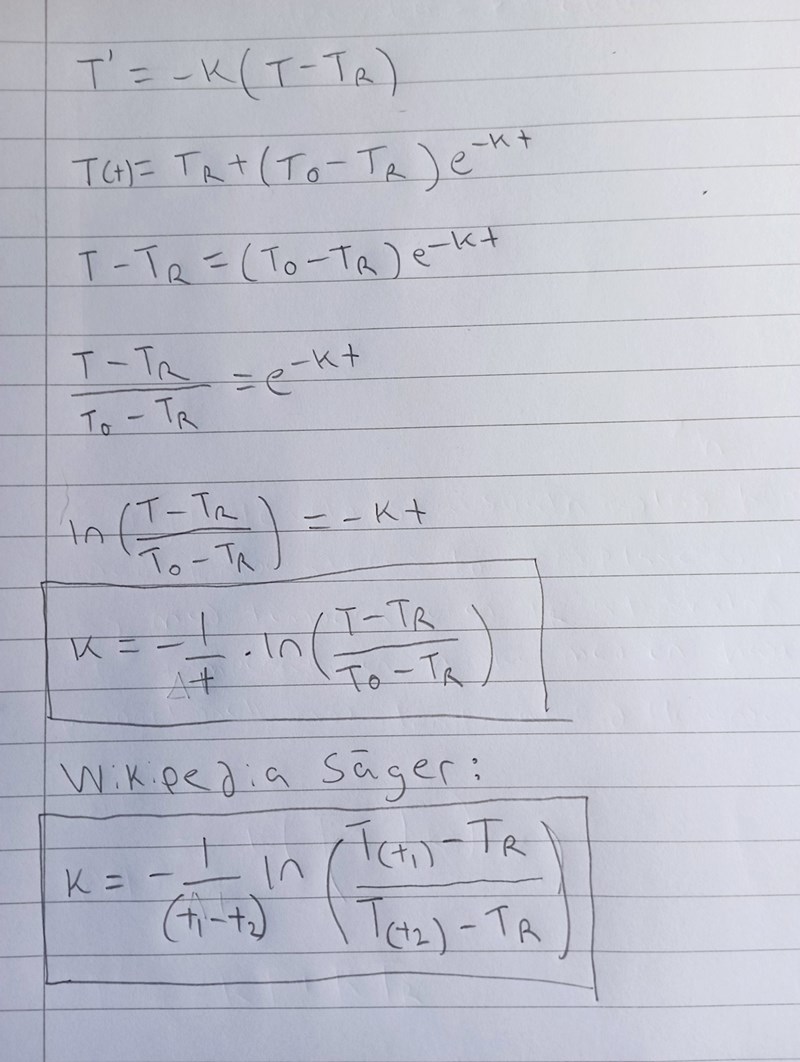 T' = -K(T-T_R)
T(t) = T_R + (T_0 - T_R) e^{-Kt}
T - T_R = (T_0 - T_R) e^{-Kt}
\frac{T - T_R}{T_0 - T_R} = e^{-Kt}
ln(\frac{T - T_R}{T_0 - T_R}) = -Kt
K = -\frac{1}{Δt} · ln(\frac{T - T_R}{T_0 - T_R})
Wikipedia Säger:
K = -\frac{1}{(t_1 - t_2)} ln(\frac{T(t_1) - T_R}{T(t_2) - T_R})